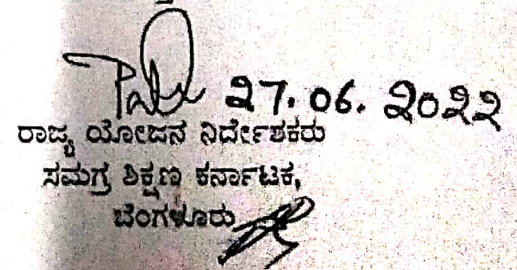 27.06.2022
ರಾಜ್ಯ ಯೋಜನ ನಿರ್ದೇಶಕರು
ಸಮಗ್ರ ಶಿಕ್ಷಣ ಕರ್ನಾಟಕ,
ಬೆಂಗಳೂರು